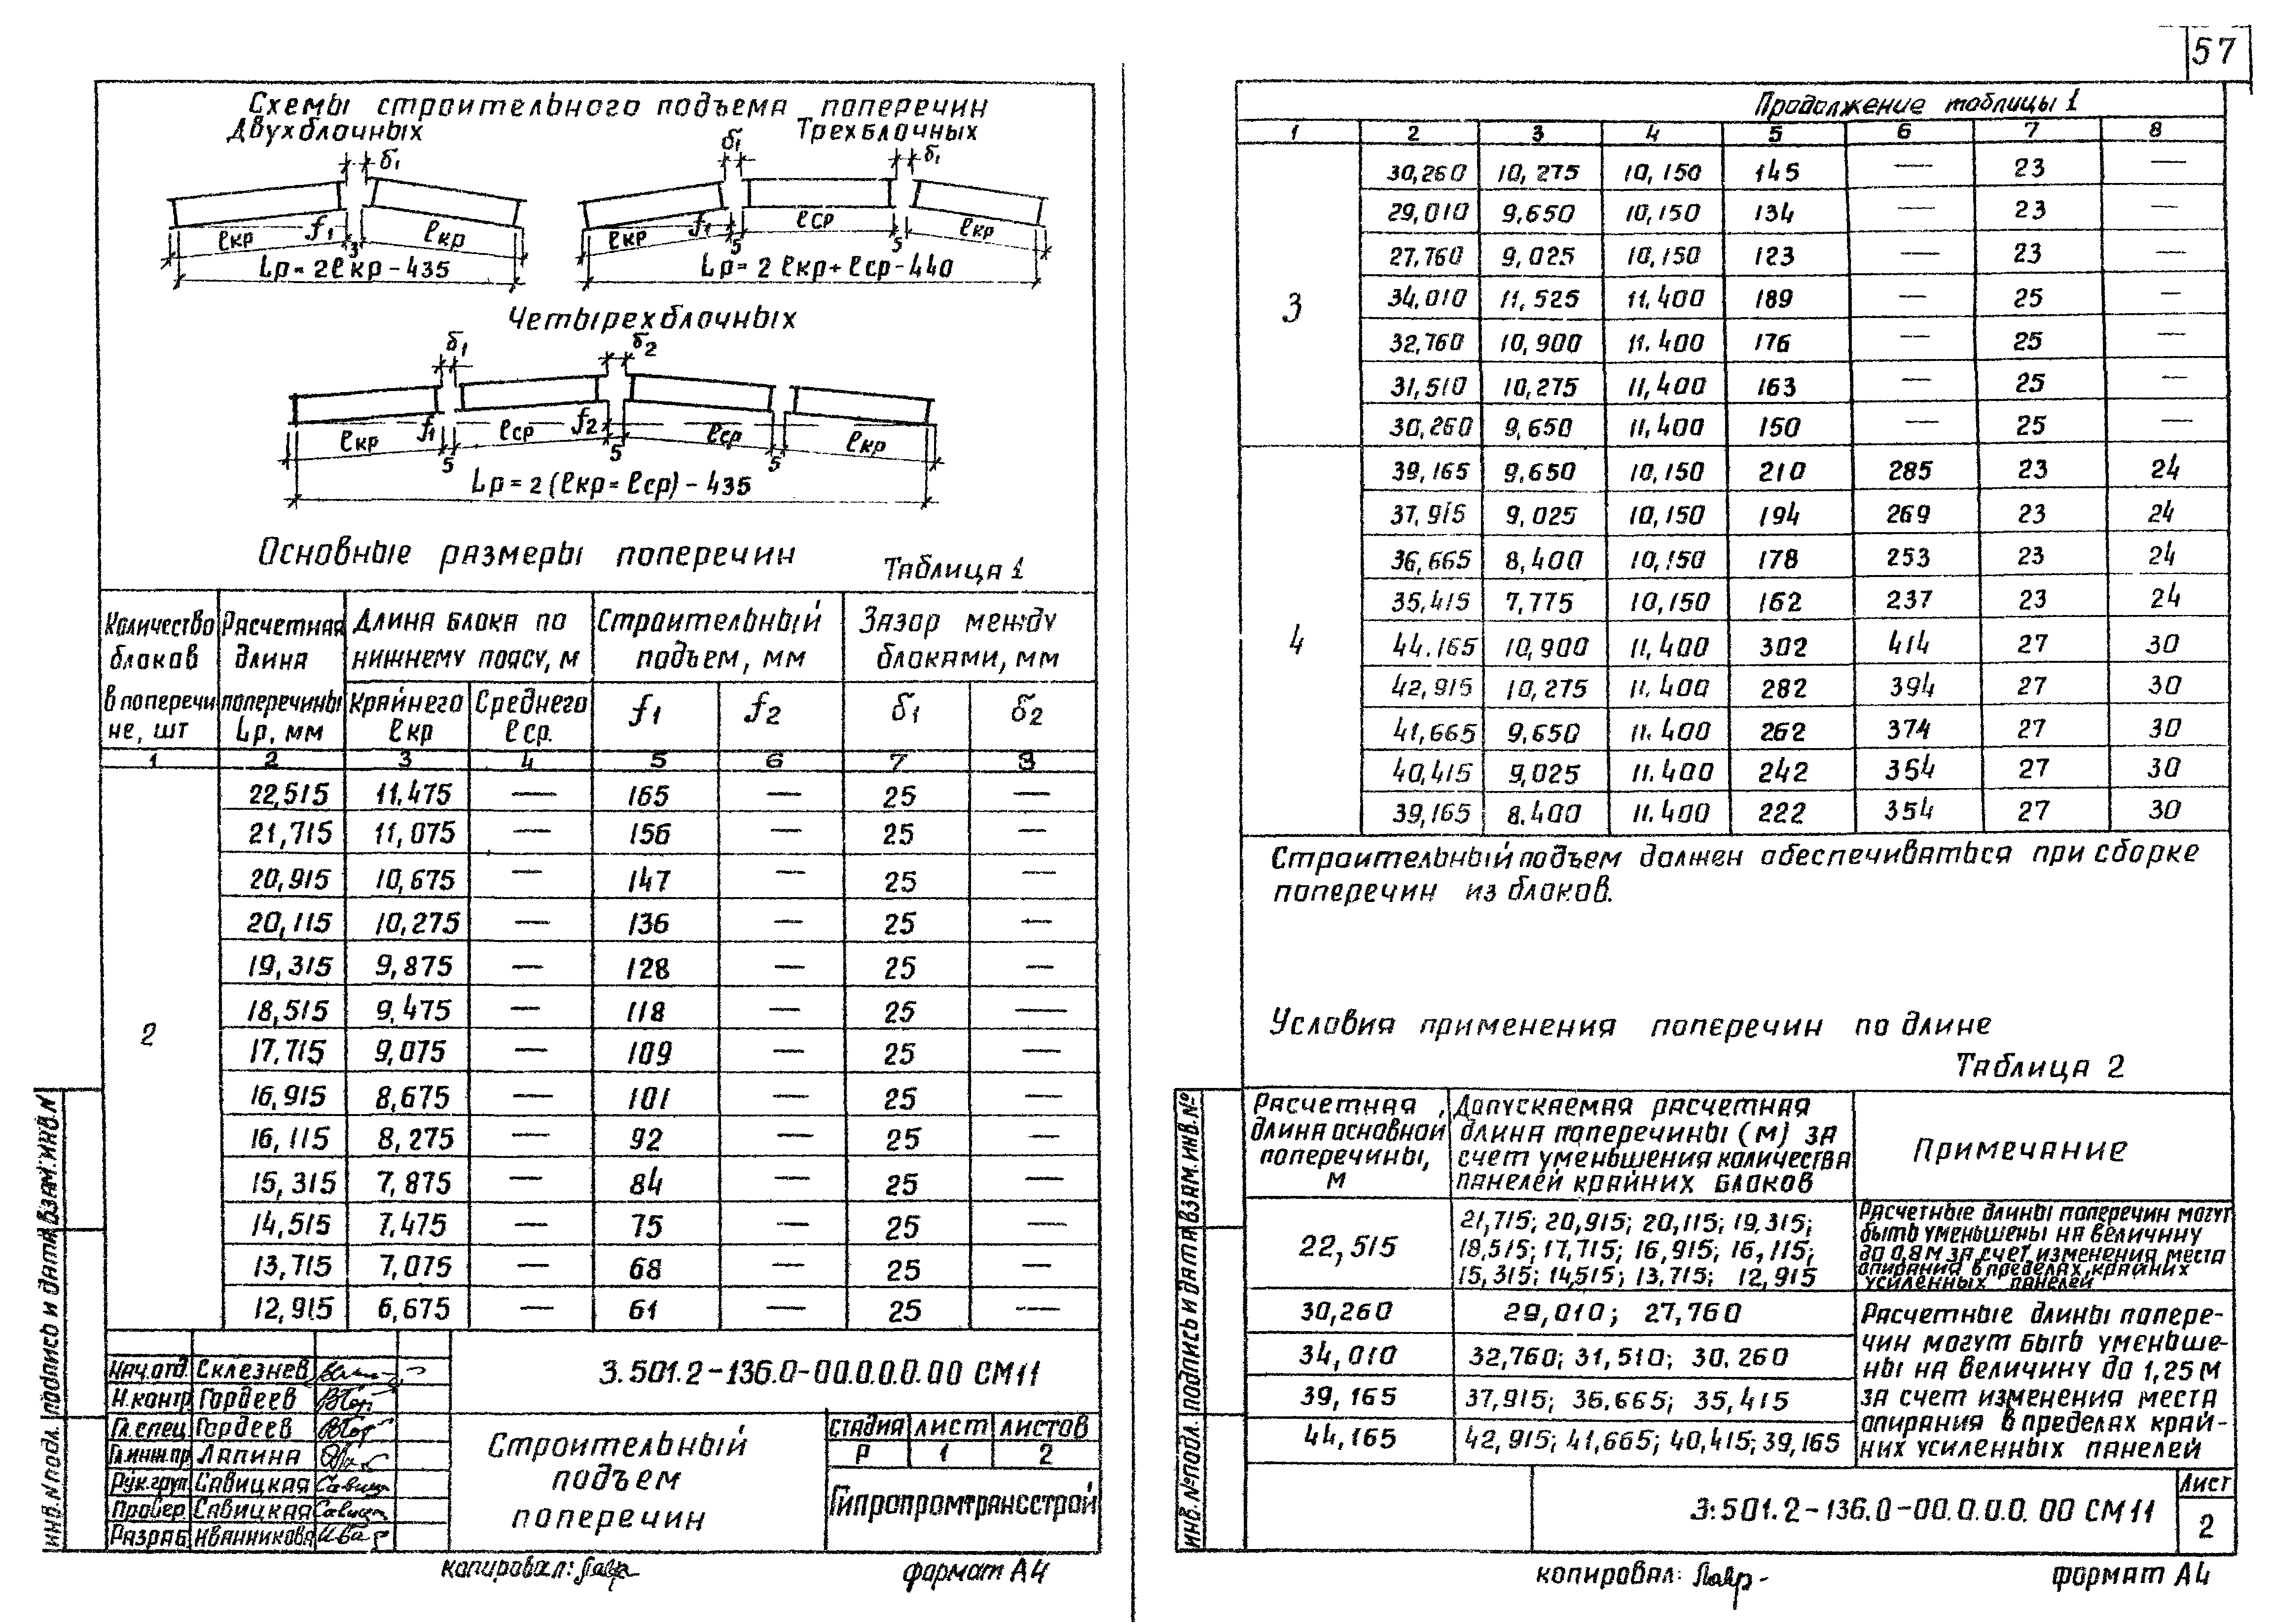 57
Схемы строительного подъема поперечин
Двухблочных
Трехблочных
δ1
δ1
δ1
ℓкр f1 3 ℓкр
Lр=2ℓкр-435
ℓкр f1 5 ℓср 5 ℓкр
Lр=2ℓкр+ℓср-440
Четырехблочных
δ1 δ2
ℓкр f1 5 ℓср f2 5 ℓср 5 ℓкр
Lр=2(ℓкр=ℓср)-435
Основные размеры поперечин
Таблица 1
Количество блоков в поперечи не, шт
Расчетная длина поперечины Lр, мм
Длина блока по нижнему поясу, м
Строительный подъем, мм
Зазор между блоками, мм
Крайнего ℓкр
Среднего ℓср.
f1
f2
δ1
δ2
1 2 3 4 5 6 7 8
2
22,515 11.475 — 165 — 25 —
21,715 11,075 — 156 — 25 —
20,915 10,675 — 147 — 25 —
20,115 10,275 — 136 — 25 —
19,315 9,875 — 128 — 25 —
18,515 9,475 — 118 — 25 —
17,715 9,075 — 109 — 25 —
16,915 8,675 — 101 — 25 —
16,115 8,275 — 92 — 25 —
15,315 7,875 — 84 — 25 —
14,515 7,475 — 75 — 25 —
13,715 7,075 — 68 — 25 —
12,915 6,675 — 61 — 25 —
3.501.2-136.0-00.0.0.0.00 СМ11
Нач.отд. Склезнев
Н.контр. Гордеев
Гл.спец. Гордеев
Гл.инж.пр. Лапина
Рук.груп. Савицкая
Провер. Савицкая
Разраб. Иванникова
Строительный
подъем
поперечин
стадия лист листов
Р 1 2
Гипропромтрансстрой
копировал:
формат А4
инв.№подл. подпись и дата взам.инв.№
Продолжение таблицы 1
1 2 3 4 5 6 7 8
3
30,260 10,275 10,150 145 — 23 —
29,010 9,650 10,150 134 — 23 —
27,760 9,025 10,150 123 — 23 —
34,010 11,525 11,400 189 — 25 —
32,760 10,900 11.400 176 — 25 —
31,510 10,275 11,400 163 — 25 —
30,260 9,650 11,400 150 — 25 —
4
39,165 9,650 10,150 210 285 23 24
37,915 9,025 10,150 194 269 23 24
36,665 8,400 10,150 178 253 23 24
35,415 7,775 10,150 162 237 23 24
44.165 10,900 11,400 302 414 27 30
42,915 10,275 11.400 282 394 27 30
41,665 9,650 11.400 262 374 27 30
40,415 9,025 11.400 242 354 27 30
39,165 8.400 11.400 222 354 27 30
Строительный подъем должен обеспечиваться при сборке
поперечин из блоков.
Условия применения поперечин по длине
Таблица 2
Расчетная длина основной поперечины, м
Допускаемая расчетная длина поперечины (м) за счет уменьшения количества панелей крайних блоков
Примечание
22,515
21,715; 20,915; 20,115; 19,315;
18,515; 17,715; 16,915; 16,115;
15,315; 14,515; 13,715; 12,915
Расчетные длины поперечин могут
быть уменьшены на величину
до 0,8м за счет изменения места
опирания в пределах крайних
усиленных панелей
30,260 29,010; 27,760
34,010 32,760; 31,510; 30.260
39,165 37,915; 36.665; 35,415
44,165 42,915; 41,665; 40,415; 39,165
Расчетные длины попере-
чин могут быть уменьше-
ны на величину до 1,25м
за счет изменения места
опирания в пределах край-
них усиленных панелей
3.501.2-136.0-00.0.0.0.00 СМ11
Лист
2
копировал:
формат А4
инв.№подл. подпись и дата взам.инв.№